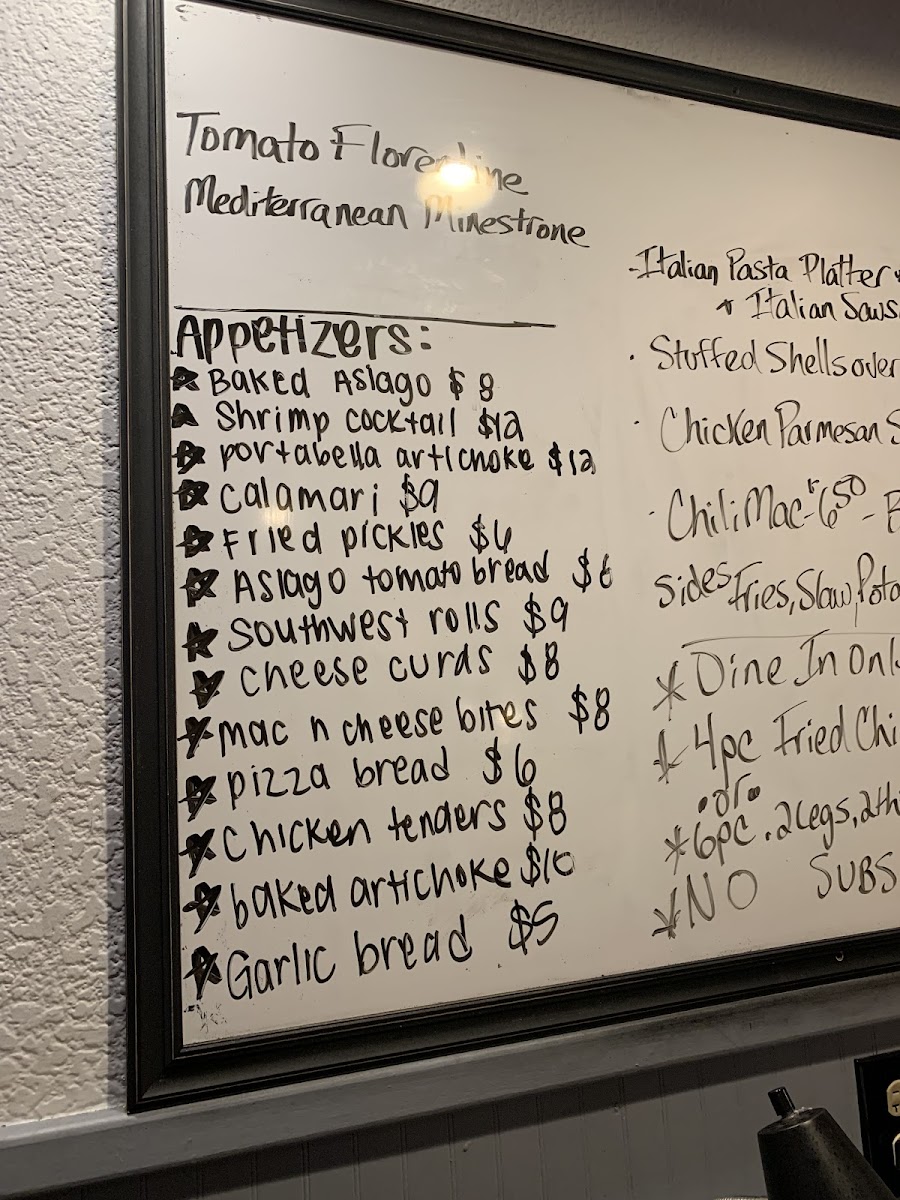 Tomato Florentine
Mediterranean Minestrone
Appetizers:
Baked Asiago $8
Shrimp cocktail $12
portabella artichoke $12
calamari $9
Fried pickles $6
Asiago tomato bread $6
Southwest rolls $9
cheese curds $8
mac n cheese bites $8
pizza bread $6
Chicken tenders $8
baked artichoke $10
Garlic bread $5
-Italian Pasta Platter
Italian Saus
· Stuffed Shells over
· Chicken Parmesan S
· Chili Mac - 6.50 - B
Sides Fries, Slaw, Pota
* Dine In Onl
* 4pc Fried Chi
• or •
* 6pc. 2 Legs, 2 th
* NO SUBS